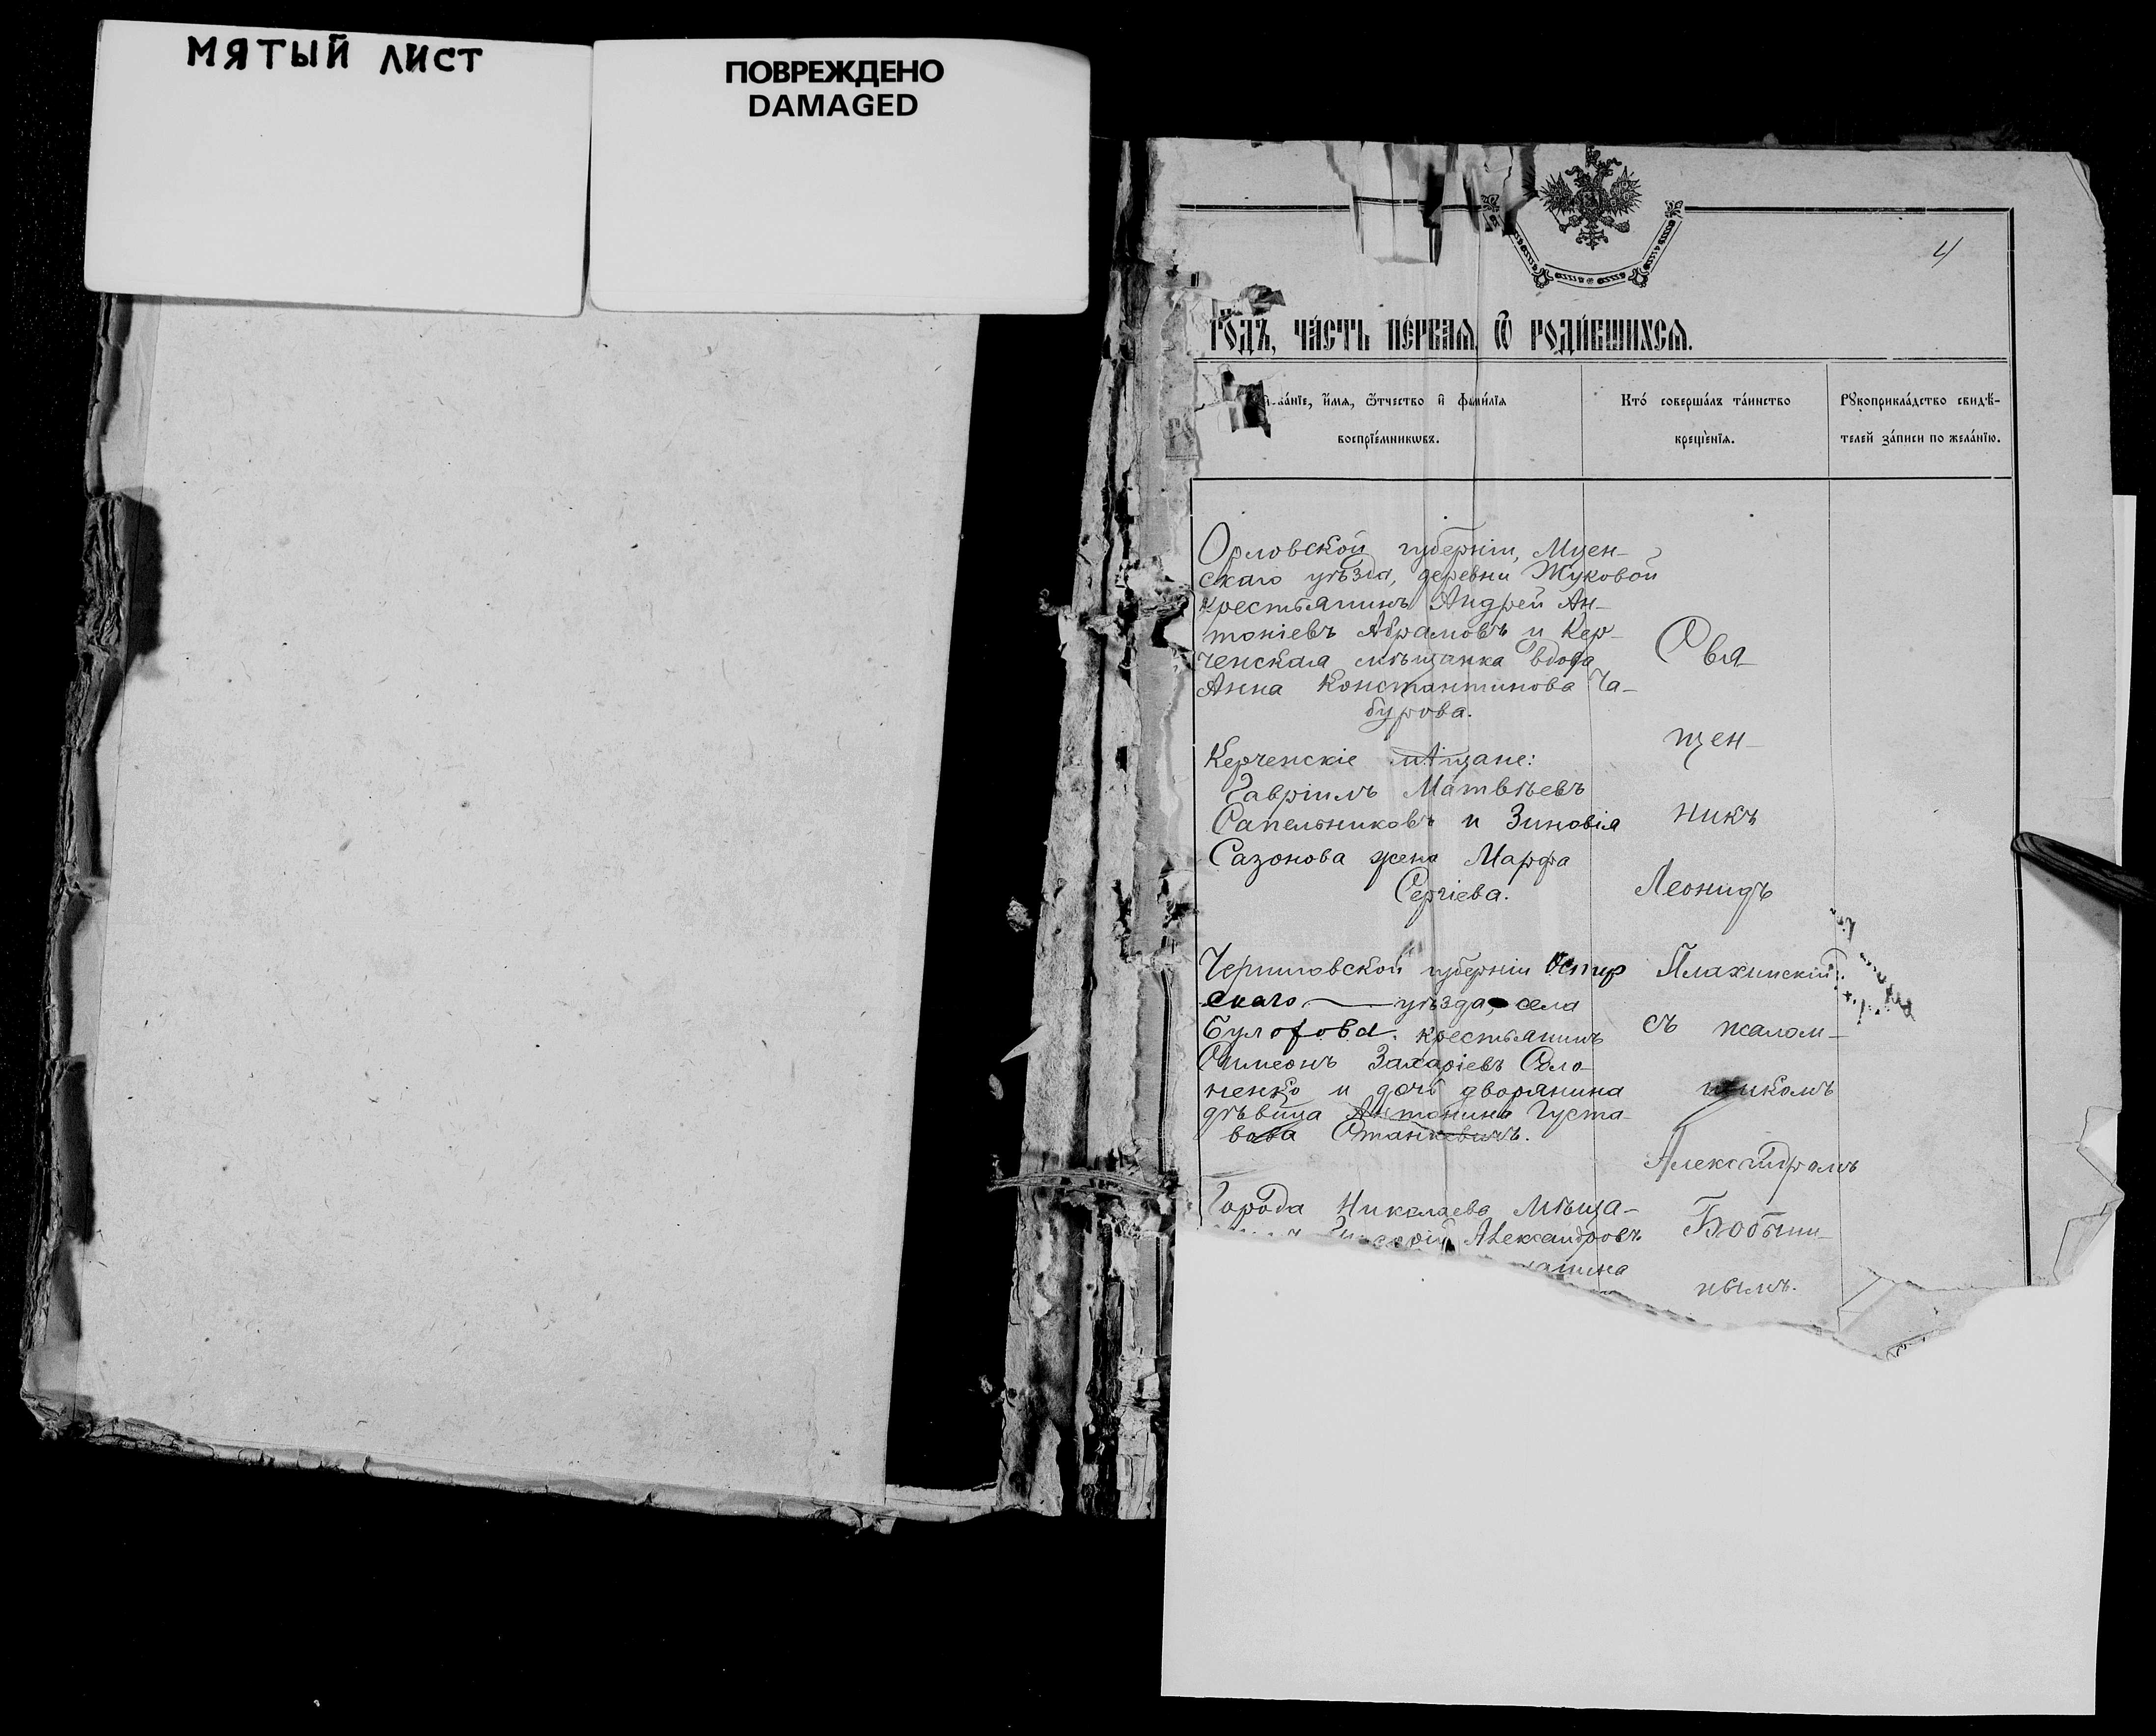 МЯТЫЙ ЛИСТ
ПОВРЕЖДЕНО
DAMAGED
4
годъ, часть первая, ѿ родившихсѧ.
имѧ, ѿтчество и фамилїѧ
воспрїемникѡвъ.
Кто совершалъ таинство
крещенїѧ.
Рꙋкоприкладство свидѣ-
телей записи по желанїю.
Орловской губернiи, Мцен-
скаго уѣзда, деревни Жуковой
крестьянинъ Андрей Ан-
тонiевъ Абрамовъ и Кер-
ченская мѣщанка вдова
Анна Константинова Ча-
бурова.
Керченскiе мѣщане:
Гаврiилъ Матвѣевъ
Сапельниковъ и Зиновiя
Сазонова жена Марфа
Сергiева.
Черниговской губернiи Остер
скаго уѣзда, села
крестьянинъ
Симеонъ Захарiевъ Соло-
ненко и дочь дворянина
дѣвица Антонина Густа-
вова Станкевичъ.
Города Николаева мѣща-
Александровъ
Свя-
щен-
никъ
Леонидъ
Плахинскiй
съ псалом-
щикомъ
Александромъ
Бобыши-
нымъ.